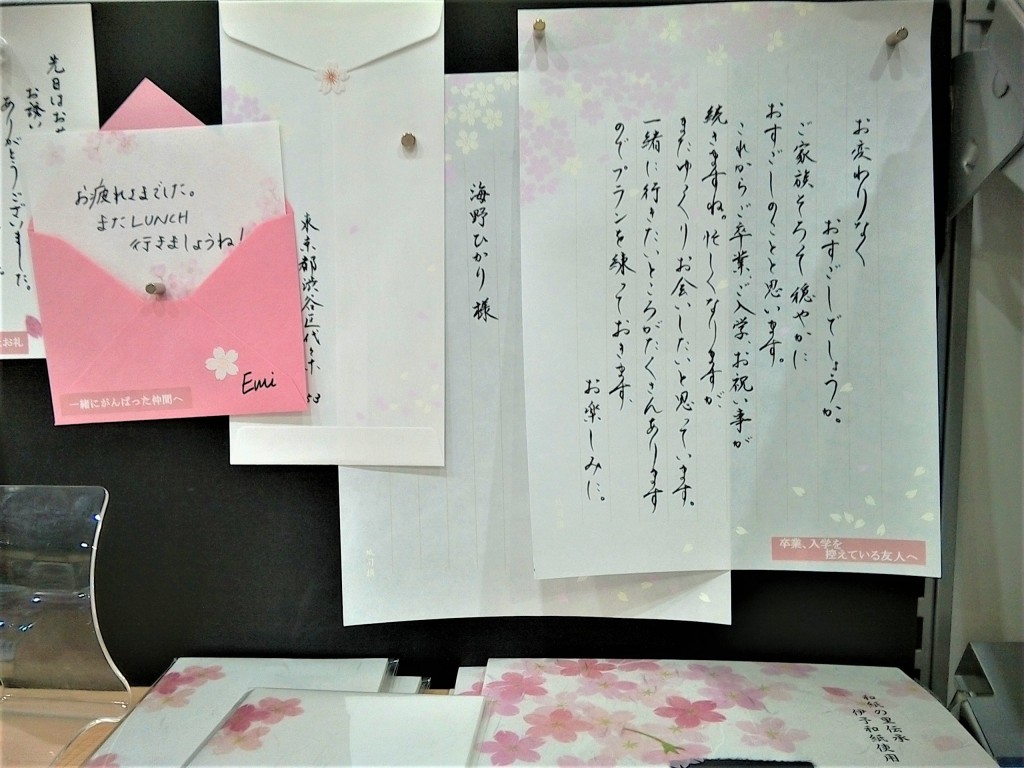 お変わりなく
おすごしでしょうか。
ご家族そろって穏やかに
おすごしのことと思います。
これからご卒業、ご入学、お祝い事が
続きますね。忙しくなりますが、
またゆっくりお会いしたいと思っています。
一緒に行きたいところがたくさんあります
のでプランを練っておきます。
お楽しみに。
卒業、入学を
控えている友人へ
海野ひかり 様
東京都渋谷区代々木
お疲れさまでした。
またLUNCH
行きましょうね!
Emi
一緒にがんばった仲間へ
先日はお
お誘い
ありがとうございました。
お礼
和紙の里伝承
伊予和紙使用